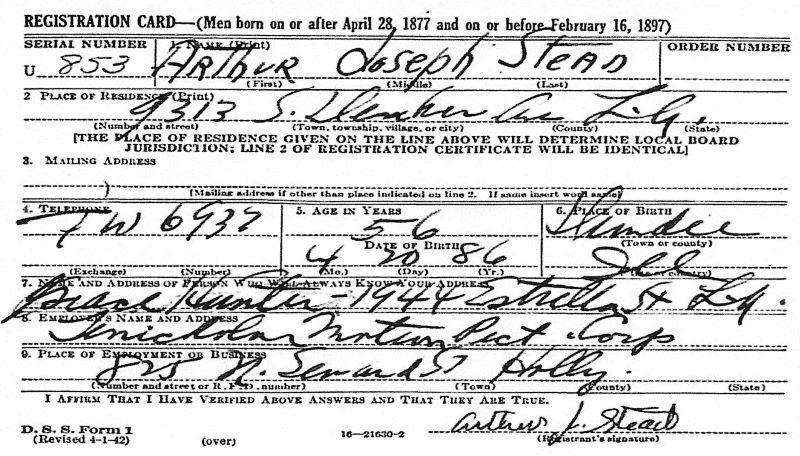 REGISTRATION CARD—(Men born on or after April 28, 1877 and on or before February 16, 1897)
SERIAL NUMBER 1. NAME (Print) ORDER NUMBER
U 853 ARTHUR Joseph STEAD
(First) (Middle) (Last)
2 PLACE OF RESIDENCE (Print)
9313 S. Ave L.A.
(Number and street) (Town, township, village, or city) (County) (State)
[THE PLACE OF RESIDENCE GIVEN ON THE LINE ABOVE WILL DETERMINE LOCAL BOARD
JURISDICTION; LINE 2 OF REGISTRATION CERTIFICATE WILL BE IDENTICAL]
3. MAILING ADDRESS
[Mailing address if other than place indicated on line 2. If same insert word same]
4. TELEPHONE 5. AGE IN YEARS 6. PLACE OF BIRTH
TW 6937 56 Dundee
DATE OF BIRTH (Town or county)
4 20 86 Ill
(Exchange) (Number) (Mo.) (Day) (Yr.) (State or country)
7. NAME AND ADDRESS OF PERSON WHO WILL ALWAYS KNOW YOUR ADDRESS
Grace Hunter - 1944 Estrella St L.A.
8. EMPLOYER'S NAME AND ADDRESS
Motion Pict. Corp
9. PLACE OF EMPLOYMENT OR BUSINESS
825 N. Seward St Holly.
(Number and street or R. F. D. number) (Town) (County) (State)
I AFFIRM THAT I HAVE VERIFIED ABOVE ANSWERS AND THAT THEY ARE TRUE.
Arthur J. Stead
D. S. S. Form 1
(Revised 4-1-42) (over) 16—21630-2 (Registrant's signature)